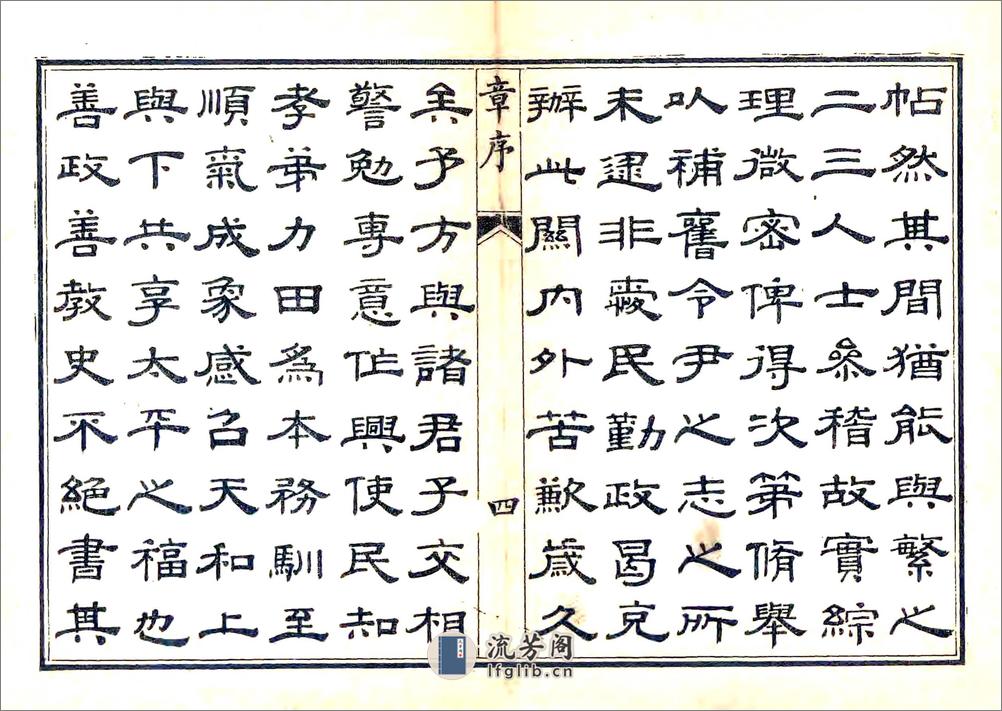 帖然其間猶能與繁之
二三人士參稽故實綜
理微密俾得次第脩舉
㕥補舊令尹之志之所
未逮非衰民勤政曷克
辦此關內外苦歉歲久
章序
四
矣予方與諸君子交相
警勉專意作興使民知
孝弟力田為本務馴至
順氣成象感召天和上
與下共享太平之福也
善政善教史不絕書其
流芳阁
lfglib.cn